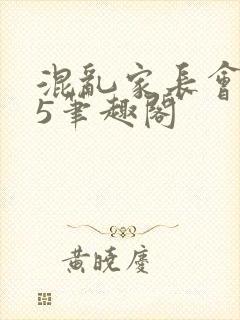 混亂家長會
5筆趣閣
黃曉慶